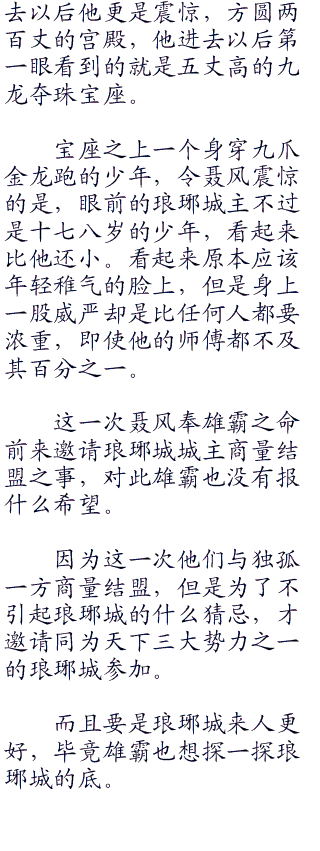 去以后他更是震惊，方圆两
百丈的宫殿，他进去以后第
一眼看到的就是五丈高的九
龙夺珠宝座。
宝座之上一个身穿九爪
金龙跑的少年，令聂风震惊
的是，眼前的琅琊城主不过
是十七八岁的少年，看起来
比他还小。看起来原本应该
年轻稚气的脸上，但是身上
一股威严却是比任何人都要
浓重，即使他的师傅都不及
其百分之一。
这一次聂风奉雄霸之命
前来邀请琅琊城城主商量结
盟之事，对此雄霸也没有报
什么希望。
因为这一次他们与独孤
一方商量结盟，但是为了不
引起琅琊城的什么猜忌，才
邀请同为天下三大势力之一
的琅琊城参加。
而且要是琅琊城来人更
好，毕竟雄霸也想探一探琅
琊城的底。